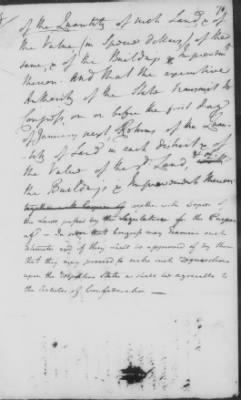 of the Quantity of such Land & of
the Value (in Specie dollars) of the
same, & of the Buildings & Improvements
thereon. And that the executive
Authority of the State transmit to
Congress, on or before the first day
of January next, Returns of the Quan-
tity of Land in each district & of
the Value of the sd. Land, & of
the Buildings & Improvements thereon
together with Copies of
the Laws passed by the Legislature for the Purpose
afsd – In order that Congress may examine such
and if they shall be approved of by them
that they may proceed to make such Requisitions
upon the respective States as shall be agreeable to
the Articles of Confederation —